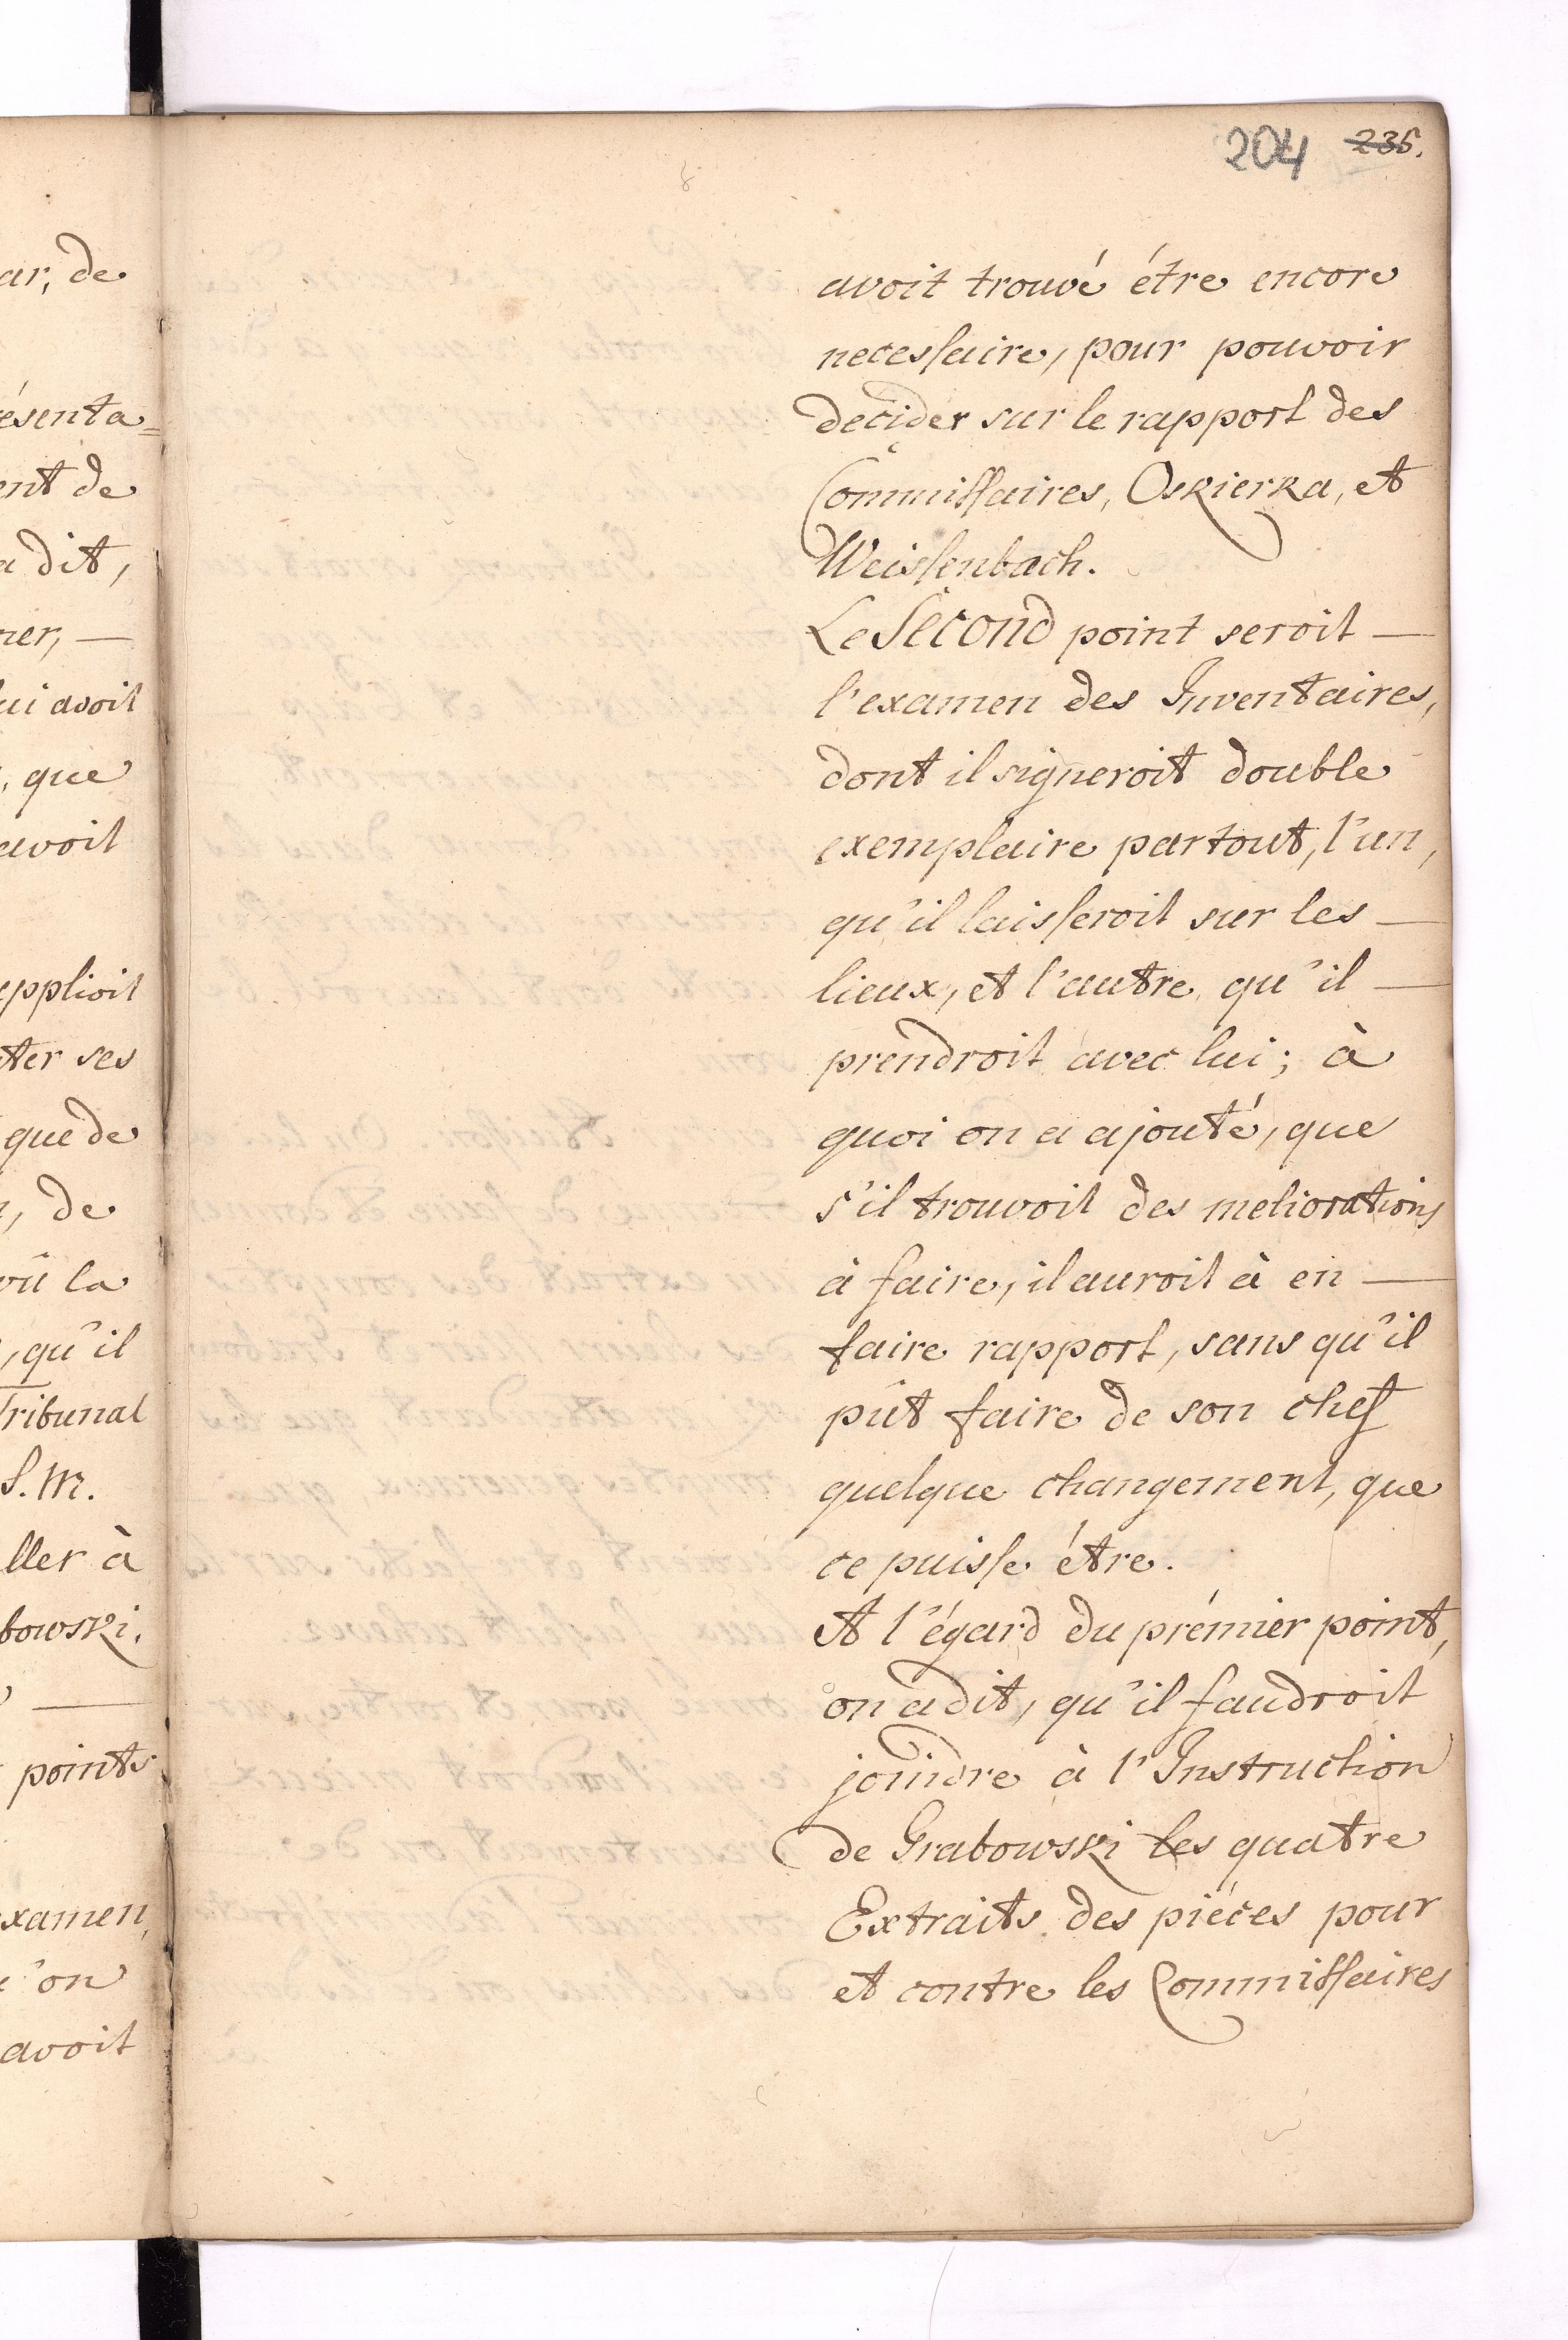 204 235.
ar, de
ésenta=
ent de
a dit,
ner, —
ui avoit
, que
avoit
pplioit
ter ses
que de
, de
vû la
, qu'il
Tribunal
S. M.
ller à
bowski.
—
points
xamen,
'on
avoit
avoit trouvé étre encore
necessaire, pour pouvoir
decider sur le rapport des
Commissaires, Oskierka, et
Weissenbach.
Le Second point seroit —
l'examen des Inventaires,
dont il signeroit double
exemplaire partout, l'un,
qu'il laisseroit sur les —
lieux, et l'autre qu'il —
prendroit avec lui; à
quoi on a ajouté, que
s'il trouvoit des meliorations
à faire, il auroit à en —
faire rapport, sans qu'il
pût faire de son chef
quelque changement, que
ce puisse étre.
A l'égard du prémier point,
on a dit, qu'il faudroit
joindre à l'Instruction
de Grabowski les quatre
Extraits des piéces pour
et contre les Commissaires